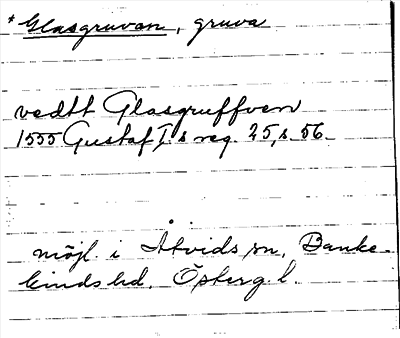 * Glasgruvan, gruva
vedtt Glasgruffven
1555 Gustaf I:s reg. 25, s. 56.
möjl. i Åtvids sn, Banke-
kinds hd, Österg. l.